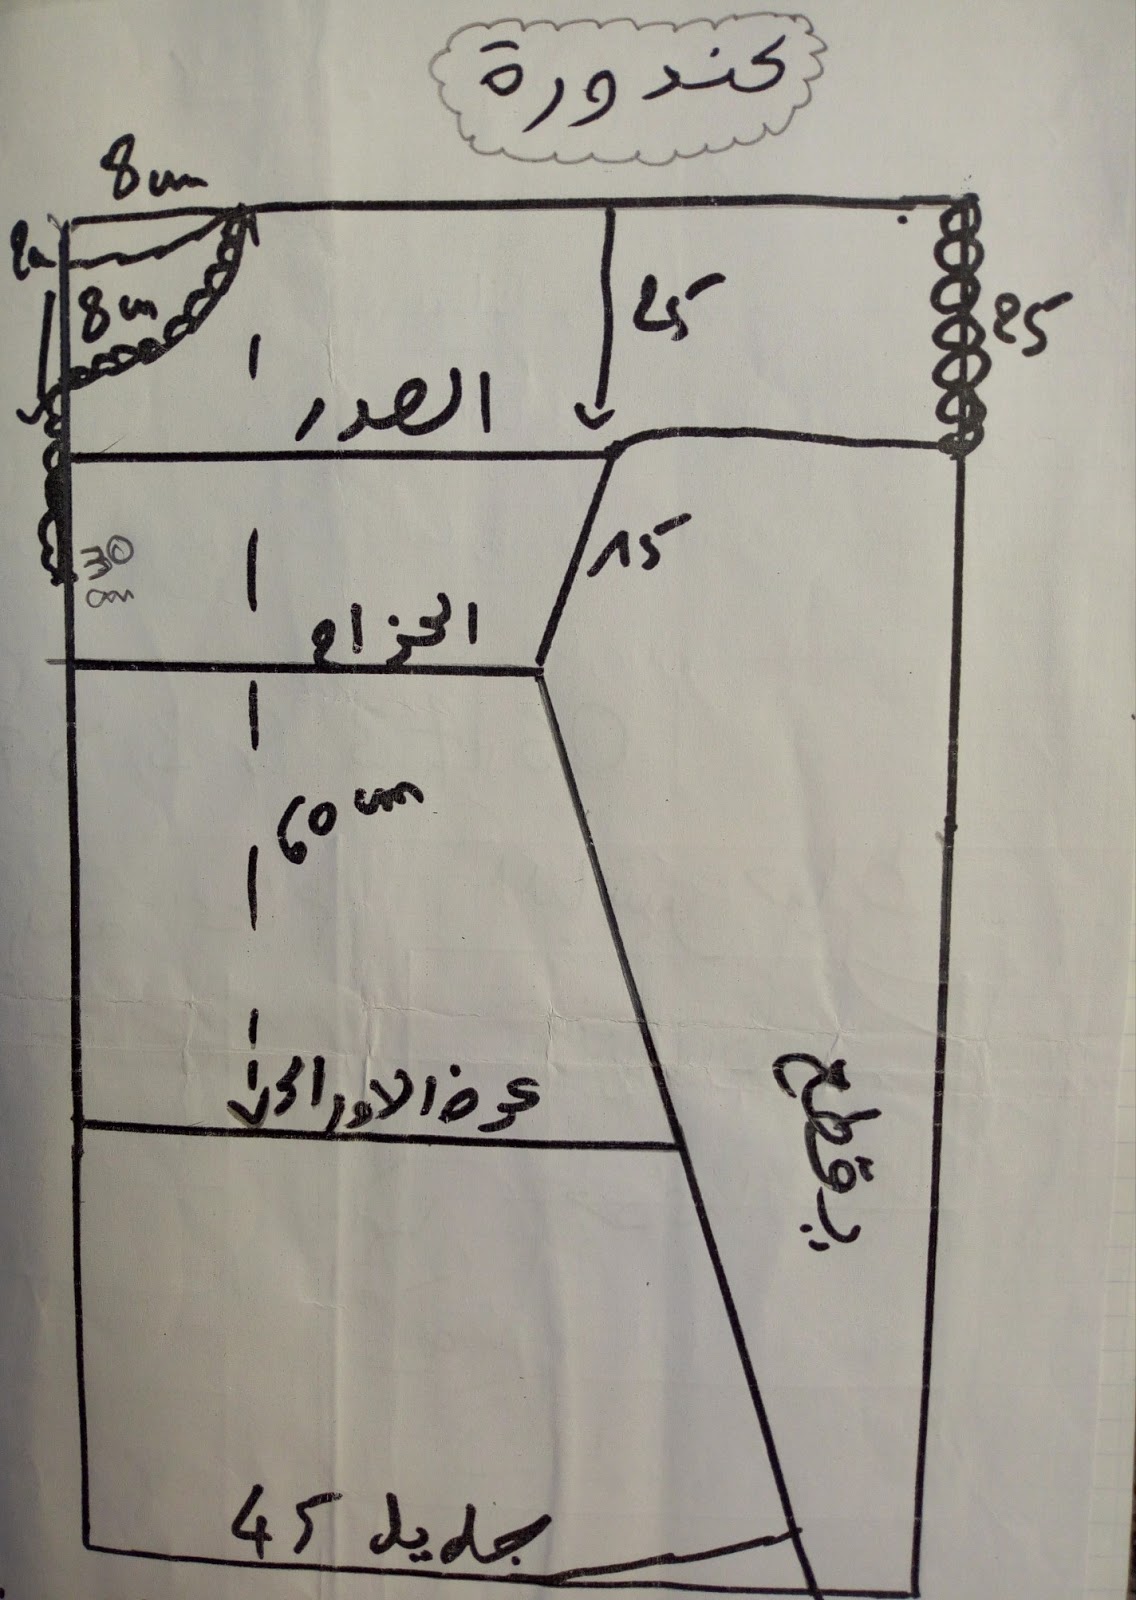 كندورة
8cm
8cm
25
25
الصدر
15
30
cm
الحزام
60 cm
عرض الاوراك
يقطع
45